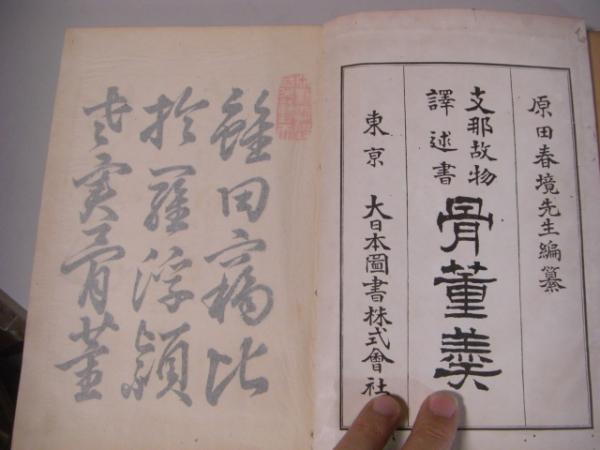 原田春境先生編纂
支那故物
譯述書
骨董羹
東京 大日本圖書株式會社
雖曰竊比
於羅浮穎
老實骨董